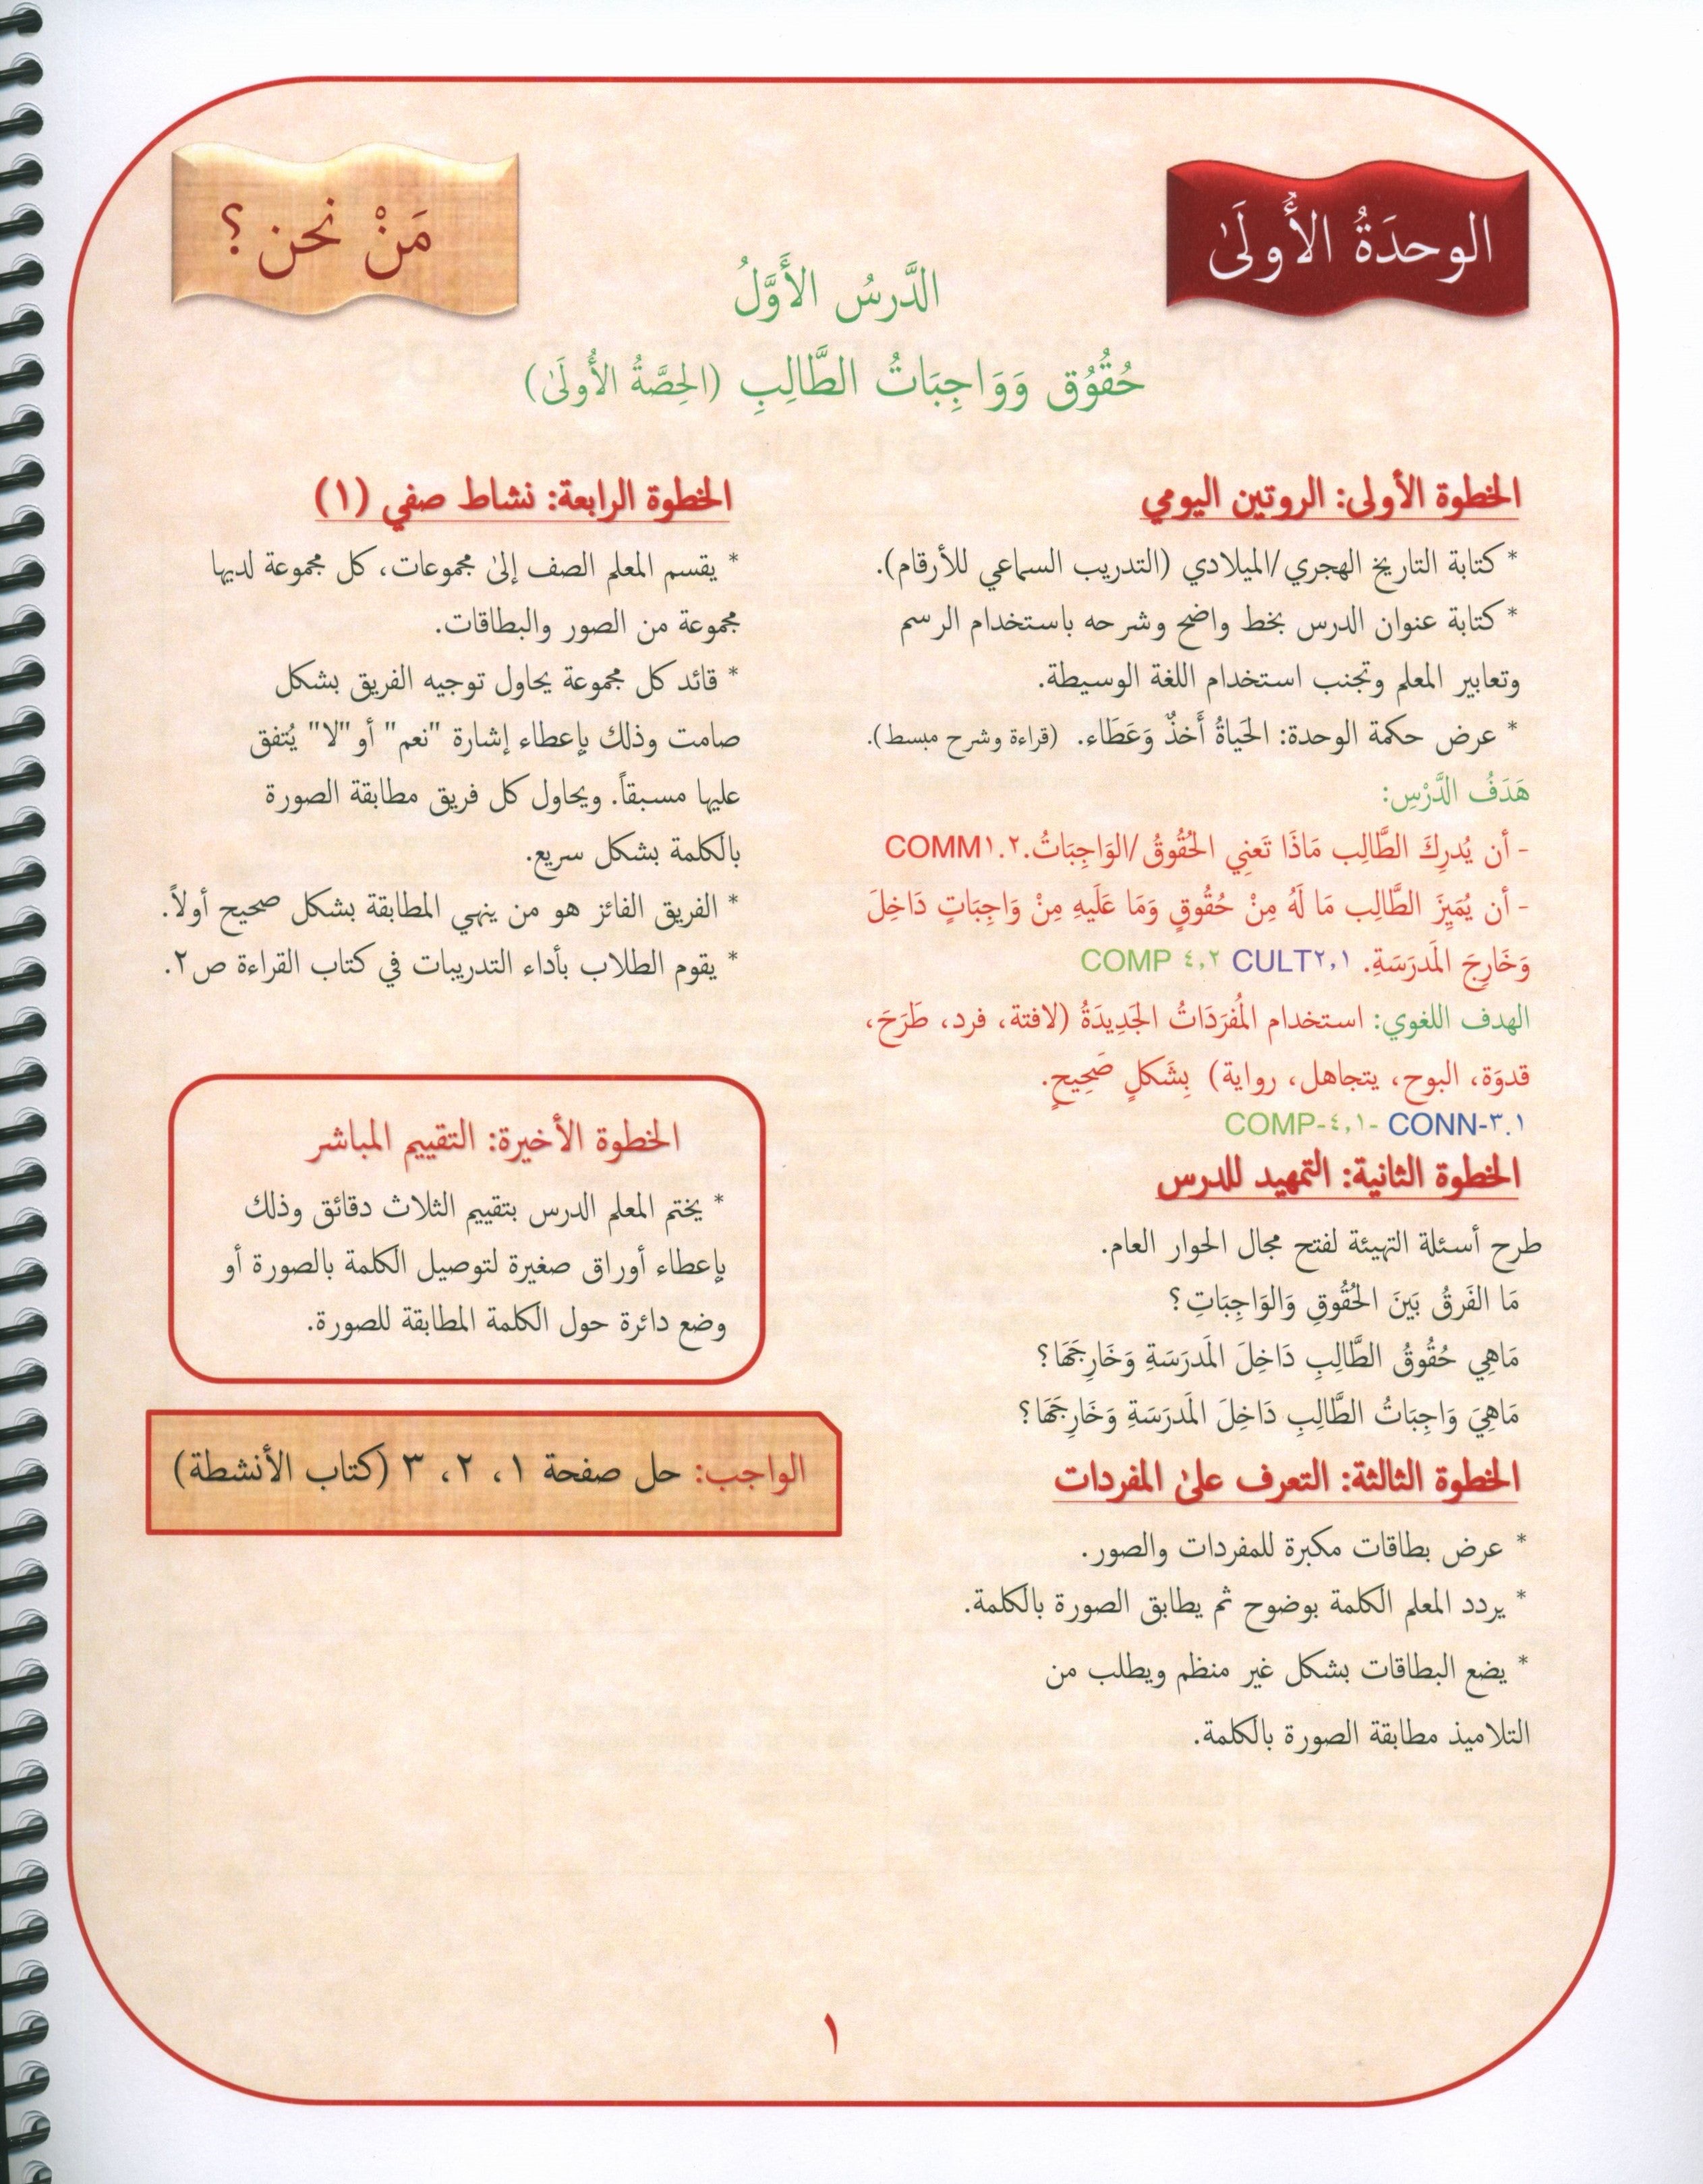 الوحدَةُ الأُولَىٰ
مَنْ نحن؟
الدَّرسُ الأَوَّلُ
حُقُوُق وَوَاجِبَاتُ الطَّالِبِ (الحِصَّةُ الأُولَىٰ)
الخطوة الأولى: الروتين اليومي
* كتابة التاريخ الهجري/الميلادي (التدريب السماعي للأرقام).
* كتابة عنوان الدرس بخط واضح وشرحه باستخدام الرسم
وتعابير المعلم وتجنب استخدام اللغة الوسيطة.
* عرض حكمة الوحدة: الحَياةُ أَخذٌ وَعَطَاء. (قراءة وشرح مبسط).
هَدَفُ الدَّرْسِ:
- أن يُدرِكَ الطَّالِب مَاذَا تَعنِي الحُقُوقُ/الوَاجِبَاتُ.COMM١.٢
- أن يُمَيِزَ الطَّالِب مَا لَهُ مِنْ حُقُوقٍ وَمَا عَلَيهِ مِنْ وَاجِبَاتٍ دَاخِلَ
وَخَارِجَ المَدرَسَةِ. CULT٢,١ COMP ٤,٢
الهدف اللغوي: استخدام المُفرَدَاتُ الجَدِيدَةُ (لافتة، فرد، طَرَحَ،
قدوَة، البوح، يتجاهل، رواية) بِشَكلٍ صَحِيحٍ.
COMP-٤,١- CONN-٣.١
الخطوة الثانية: التمهيد للدرس
طرح أسئلة التهيئة لفتح مجال الحوار العام.
مَا الفَرقُ بَينَ الحُقُوقِ وَالوَاجِبَاتِ؟
مَاهِي حُقُوقُ الطَّالِبِ دَاخِلَ المَدرَسَةِ وَخَارِجَهَا؟
مَاهِيَ وَاجِبَاتُ الطَّالِبِ دَاخِلَ المَدرَسَةِ وَخَارِجَهَا؟
الخطوة الثالثة: التعرف علىٰ المفردات
* عرض بطاقات مكبرة للمفردات والصور.
* يردد المعلم الكلمة بوضوح ثم يطابق الصورة بالكلمة.
* يضع البطاقات بشكل غير منظم ويطلب من
التلاميذ مطابقة الصورة بالكلمة.
الخطوة الرابعة: نشاط صفي (١)
* يقسم المعلم الصف إلىٰ مجموعات، كل مجموعة لديها
مجموعة من الصور والبطاقات.
* قائد كل مجموعة يحاول توجيه الفريق بشكل
صامت وذلك بإعطاء إشارة "نعم" أو "لا" يُتفق
عليها مسبقاً. ويحاول كل فريق مطابقة الصورة
بالكلمة بشكل سريع.
* الفريق الفائز هو من ينهي المطابقة بشكل صحيح أولاً.
* يقوم الطلاب بأداء التدريبات في كتاب القراءة ص٢.
الخطوة الأخيرة: التقييم المباشر
* يختم المعلم الدرس بتقييم الثلاث دقائق وذلك
بإعطاء أوراق صغيرة لتوصيل الكلمة بالصورة أو
وضع دائرة حول الكلمة المطابقة للصورة.
الواجب: حل صفحة ١، ٢، ٣ (كتاب الأنشطة)
١